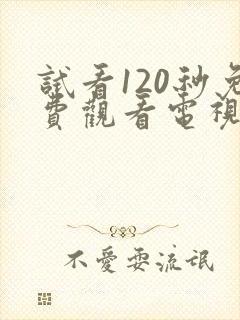 試看120秒免
費觀看電視
不愛耍流氓